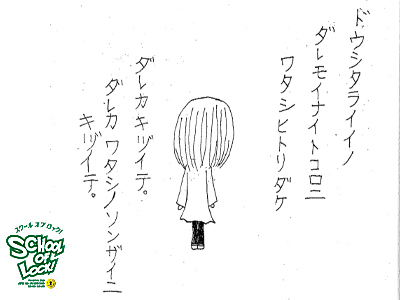 ドウシタライイノ
ダレモイナイトコロニ
ワタシヒトリダケ
ダレカキヅイテ。
ダレカワタシノソンザイニ
キヅイテ。
スクール オブ ロック!
SCHOOL
OF
LOCK!